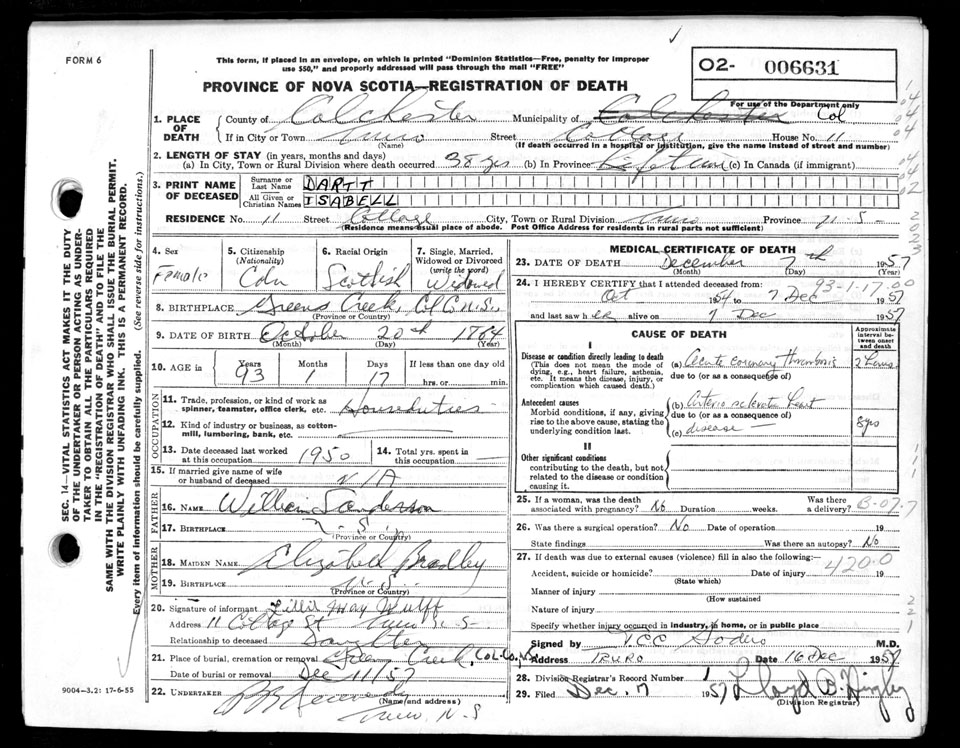 FORM 6
This form, if placed in an envelope, on which is printed "Dominion Statistics—Free, penalty for improper
use $50," and properly addressed will pass through the mail "FREE"
PROVINCE OF NOVA SCOTIA—REGISTRATION OF DEATH
O2- 006631
For use of the Department only
1. PLACE OF DEATH County of Colchester Municipality of Colchester Col
If in City or Town Truro Street College House No. 11
(Name) (If death occurred in a hospital or institution, give the name instead of street and number)
2. LENGTH OF STAY (in years, months and days)
(a) In City, Town or Rural Division where death occurred 38 yrs (b) In Province Lifetime (c) In Canada (if immigrant)
3. PRINT NAME OF DECEASED Surname or Last Name DARTT
All Given or Christian Names ISABELL
RESIDENCE No. 11 Street College City, Town or Rural Division Truro Province N.S-
(Residence means usual place of abode. Post Office Address for residents in rural parts not sufficient)
4. Sex Female
5. Citizenship (Nationality) Cdn
6. Racial Origin Scottish
7. Single, Married, Widowed or Divorced (write the word) Widowed
8. BIRTHPLACE Greens Creek, Col Co N.S.
(Province or Country)
9. DATE OF BIRTH October 20th 1864
(Month) (Day) (Year)
10. AGE in Years 93 Months 1 Days 17 If less than one day old hrs. or min.
OCCUPATION
11. Trade, profession, or kind of work as spinner, teamster, office clerk, etc. Houseduties
12. Kind of industry or business, as cotton-mill, lumbering, bank, etc. —
13. Date deceased last worked at this occupation 1950
14. Total yrs. spent in this occupation —
15. If married give name of wife or husband of deceased N/A
FATHER
16. NAME William Sanderson
17. BIRTHPLACE N.S.
(Province or Country)
MOTHER
18. MAIDEN NAME Elizabeth Bradley
19. BIRTHPLACE N.S.
(Province or Country)
20. Signature of informant Lillie May Wulff
Address 11 College St Truro N-S-
Relationship to deceased Daughter
21. Place of burial, cremation or removal Creek, Col. Co. N.S
Date of burial or removal Dec 11/57
22. UNDERTAKER Kennedy
(Name and address)
Truro N.S
9004—3.2: 17-6-55
MEDICAL CERTIFICATE OF DEATH
23. DATE OF DEATH December 7th 1957
(Month) (Day) (Year)
93-1-17.00
24. I HEREBY CERTIFY that I attended deceased from:
Oct 1954 to 7 Dec 1957
and last saw her alive on 7 Dec 1957
CAUSE OF DEATH
Approximate interval between onset and death
I
Disease or condition directly leading to death
(This does not mean the mode of dying, e.g., heart failure, asthenia, etc. It means the disease, injury, or complication which caused death.)
(a) Acute coronary Thrombosis 2 hours
due to (or as a consequence of)
Antecedent causes
Morbid conditions, if any, giving rise to the above cause, stating the underlying condition last.
(b) Arterio sclerotic heart
due to (or as a consequence of) 8 yrs
(c) disease —
II
Other significant conditions
contributing to the death, but not related to the disease or condition causing it.
25. If a woman, was the death associated with pregnancy? No Duration weeks. Was there a delivery?
B-077
26. Was there a surgical operation? No Date of operation 19
State findings Was there an autopsy? No
27. If death was due to external causes (violence) fill in also the following:—
420.0
Accident, suicide or homicide? Date of injury 19
(State which)
Manner of injury
(How sustained)
Nature of injury
Specify whether injury occurred in industry, in home, or in public place
Signed by M.D.
Address TRURO Date 16 Dec 1957
28. Division Registrar's Record Number 1
29. Filed Dec. 7 1957 Lloyd B.
(Division Registrar)
SEC. 14—VITAL STATISTICS ACT MAKES IT THE DUTY
OF THE UNDERTAKER OR PERSON ACTING AS UNDER-
TAKER TO OBTAIN ALL THE PARTICULARS REQUIRED
IN THE "REGISTRATION OF DEATH" AND TO FILE THE
SAME WITH THE DIVISION REGISTRAR WHO SHALL ISSUE THE BURIAL PERMIT.
WRITE PLAINLY WITH UNFADING INK. THIS IS A PERMANENT RECORD.
Every item of information should be carefully supplied. (See reverse side for instructions.)